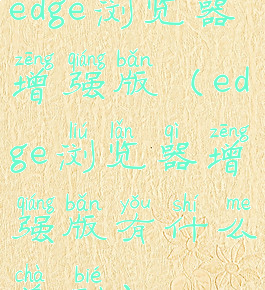 edge浏览器
zēng qiáng bǎn
增强版（ed
liú lǎn qì zēng
ge浏览器增
qiáng bǎn yǒu shí me
强版有什么
chà bié